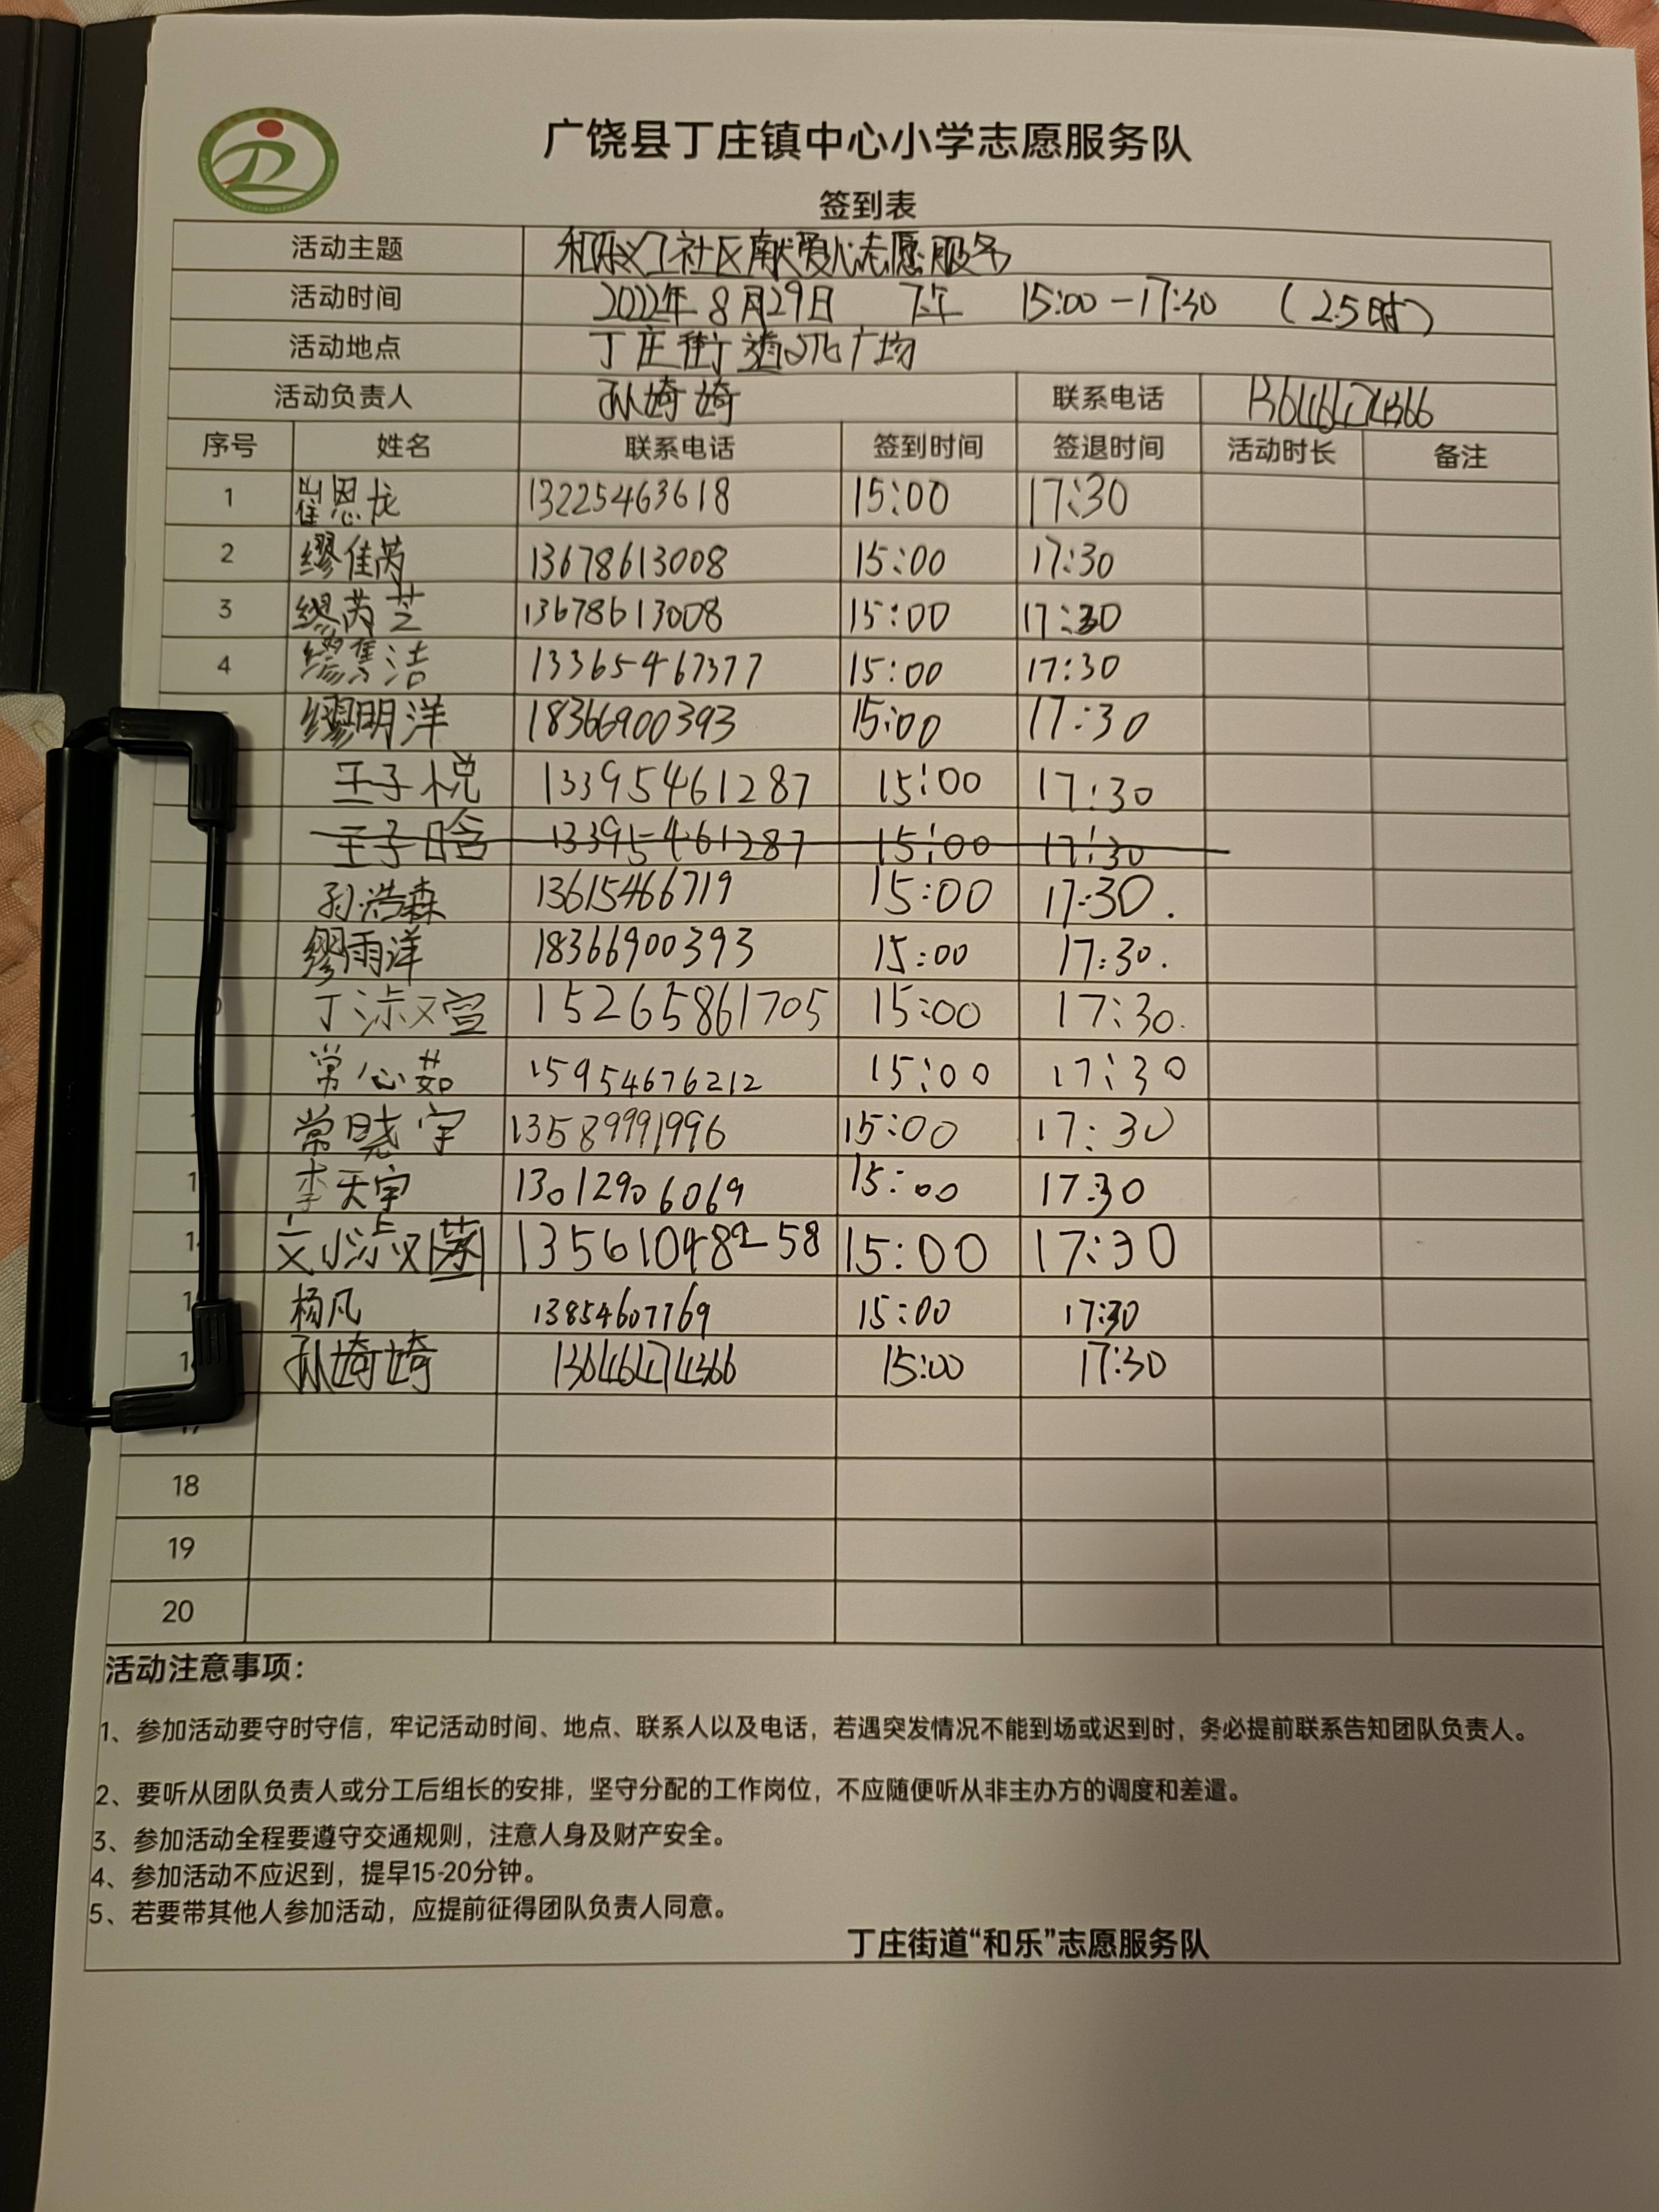 广饶县丁庄镇中心小学志愿服务队
签到表
活动主题 和乐义工社区献爱心志愿服务
活动时间 2022年8月29日 下午 15:00-17:30 (2.5时)
活动地点 丁庄街道文化广场
活动负责人 孙婍婍 联系电话 13646474366
序号 姓名 联系电话 签到时间 签退时间 活动时长 备注
1 崔恩龙 13225463618 15:00 17:30
2 缪佳芮 13678613008 15:00 17:30
3 缪芮芝 13678613008 15:00 17:30
4 缪隽洁 13365467377 15:00 17:30
缪明洋 18366900393 15:00 17:30
王子悦 13395461287 15:00 17:30
王子晗 13395461287 15:00 17:30
孙浩森 13615466719 15:00 17:30.
缪雨洋 18366900393 15:00 17:30.
丁淑宣 15265861705 15:00 17:30.
常心茹 15954676212 15:00 17:30
常晓宇 13589991996 15:00 17:30
李天宇 13012906069 15:00 17:30
15:00 17:30
杨凡 13854607769 15:00 17:30
孙婍婍 13646474366 15:00 17:30
17
18
19
20
活动注意事项：
1、参加活动要守时守信，牢记活动时间、地点、联系人以及电话，若遇突发情况不能到场或迟到时，务必提前联系告知团队负责人。
2、要听从团队负责人或分工后组长的安排，坚守分配的工作岗位，不应随便听从非主办方的调度和差遣。
3、参加活动全程要遵守交通规则，注意人身及财产安全。
4、参加活动不应迟到，提早15-20分钟。
5、若要带其他人参加活动，应提前征得团队负责人同意。
丁庄街道“和乐”志愿服务队